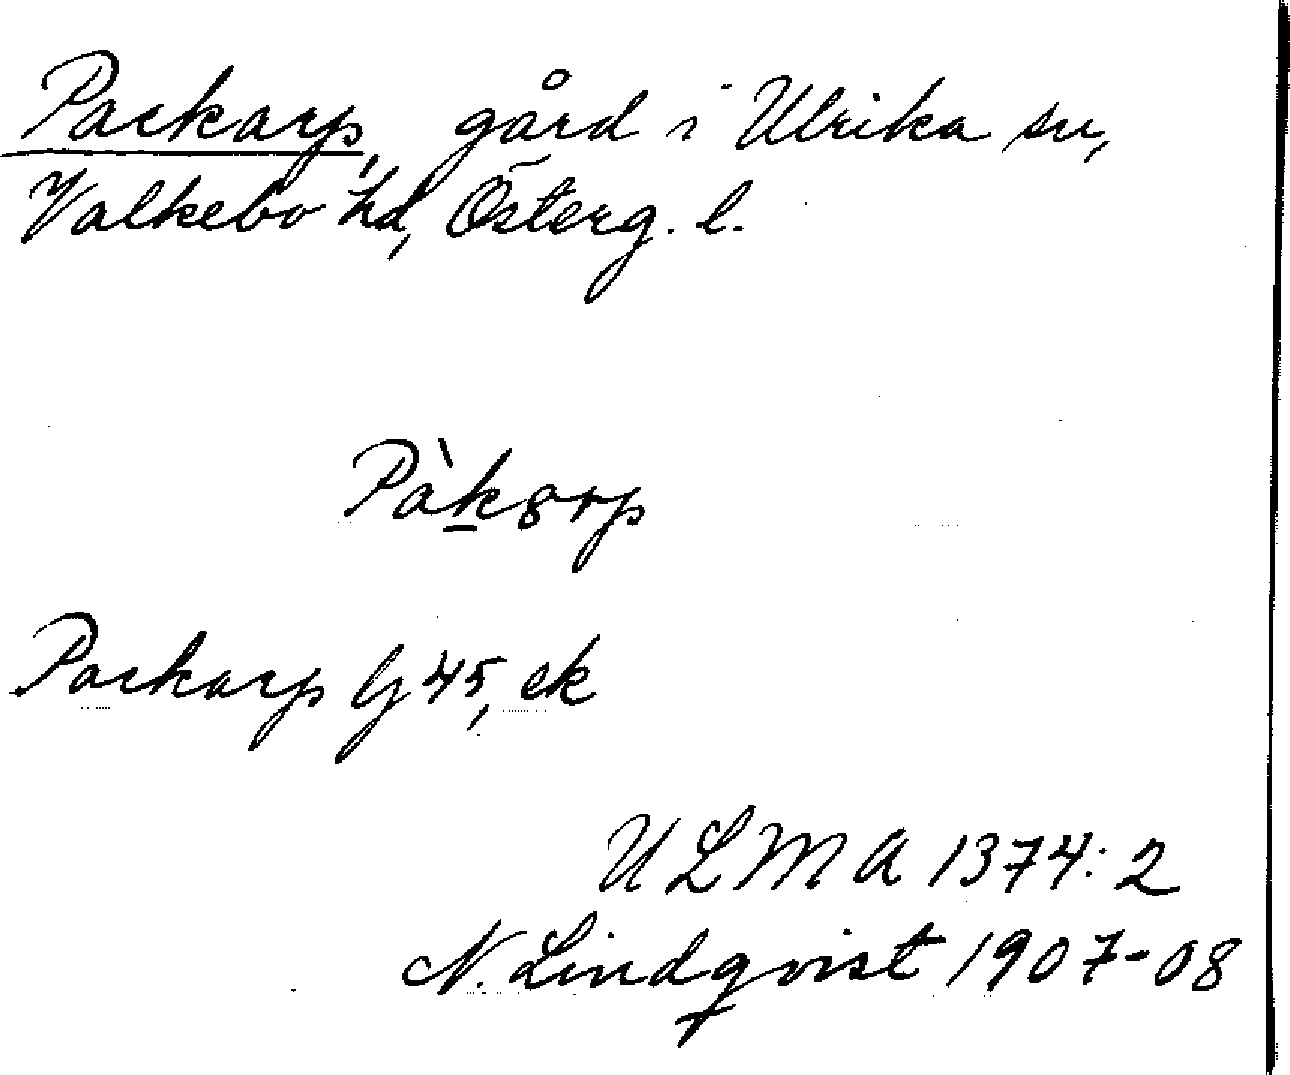 Packarp, gård i Ulrika sn,
Valkebo hd, Österg. l.
Pàk̲ɞrp
Packarp Gj 45, ek
ULMA 1374:2
N. Lindqvist 1907-08